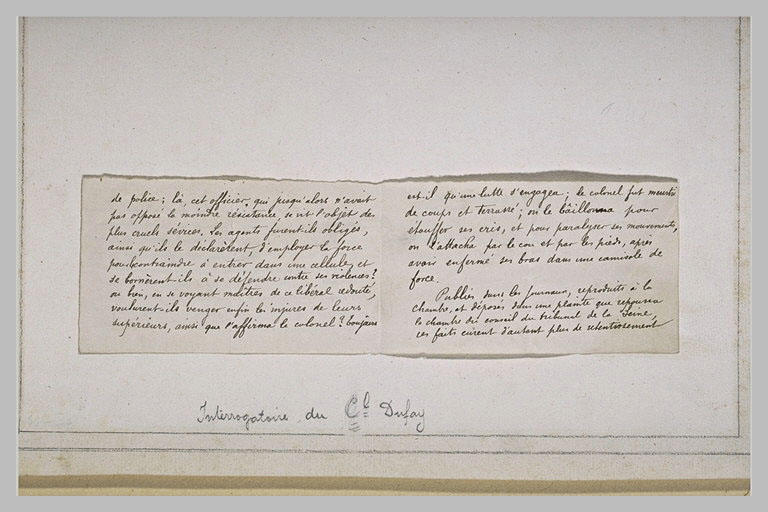 de police; là, cet officier, qui jusqu'alors n'avait
pas opposé la moindre résistance, se vit l'objet des
plus cruels sévices. Les agents furent-ils obligés,
ainsi qu'ils le déclarèrent, d'employer la force
pour contraindre à entrer dans une cellule, et
se bornèrent-ils à se défendre contre ses violences?
ou bien, en se voyant maîtres de ce libéral redouté,
voulurent-ils venger enfin les injures de leurs
supérieurs, ainsi que l'affirma le colonel? toujours
est-il qu'une lutte s'engagea; le colonel fut meurtri
de coups et terrassé; on le bâillonna pour
étouffer ses cris, et pour paralyser ses mouvements,
on l'attacha par le cou et par les pieds, après
avoir enfermé ses bras dans une camisole de
force.
Publiés dans les journaux, reproduits à la
chambre, et déposés dans une plainte que repoussa
la chambre du conseil du tribunal de la Seine,
ces faits eurent d'autant plus de retentissement
Interrogatoire du Cl Dufay